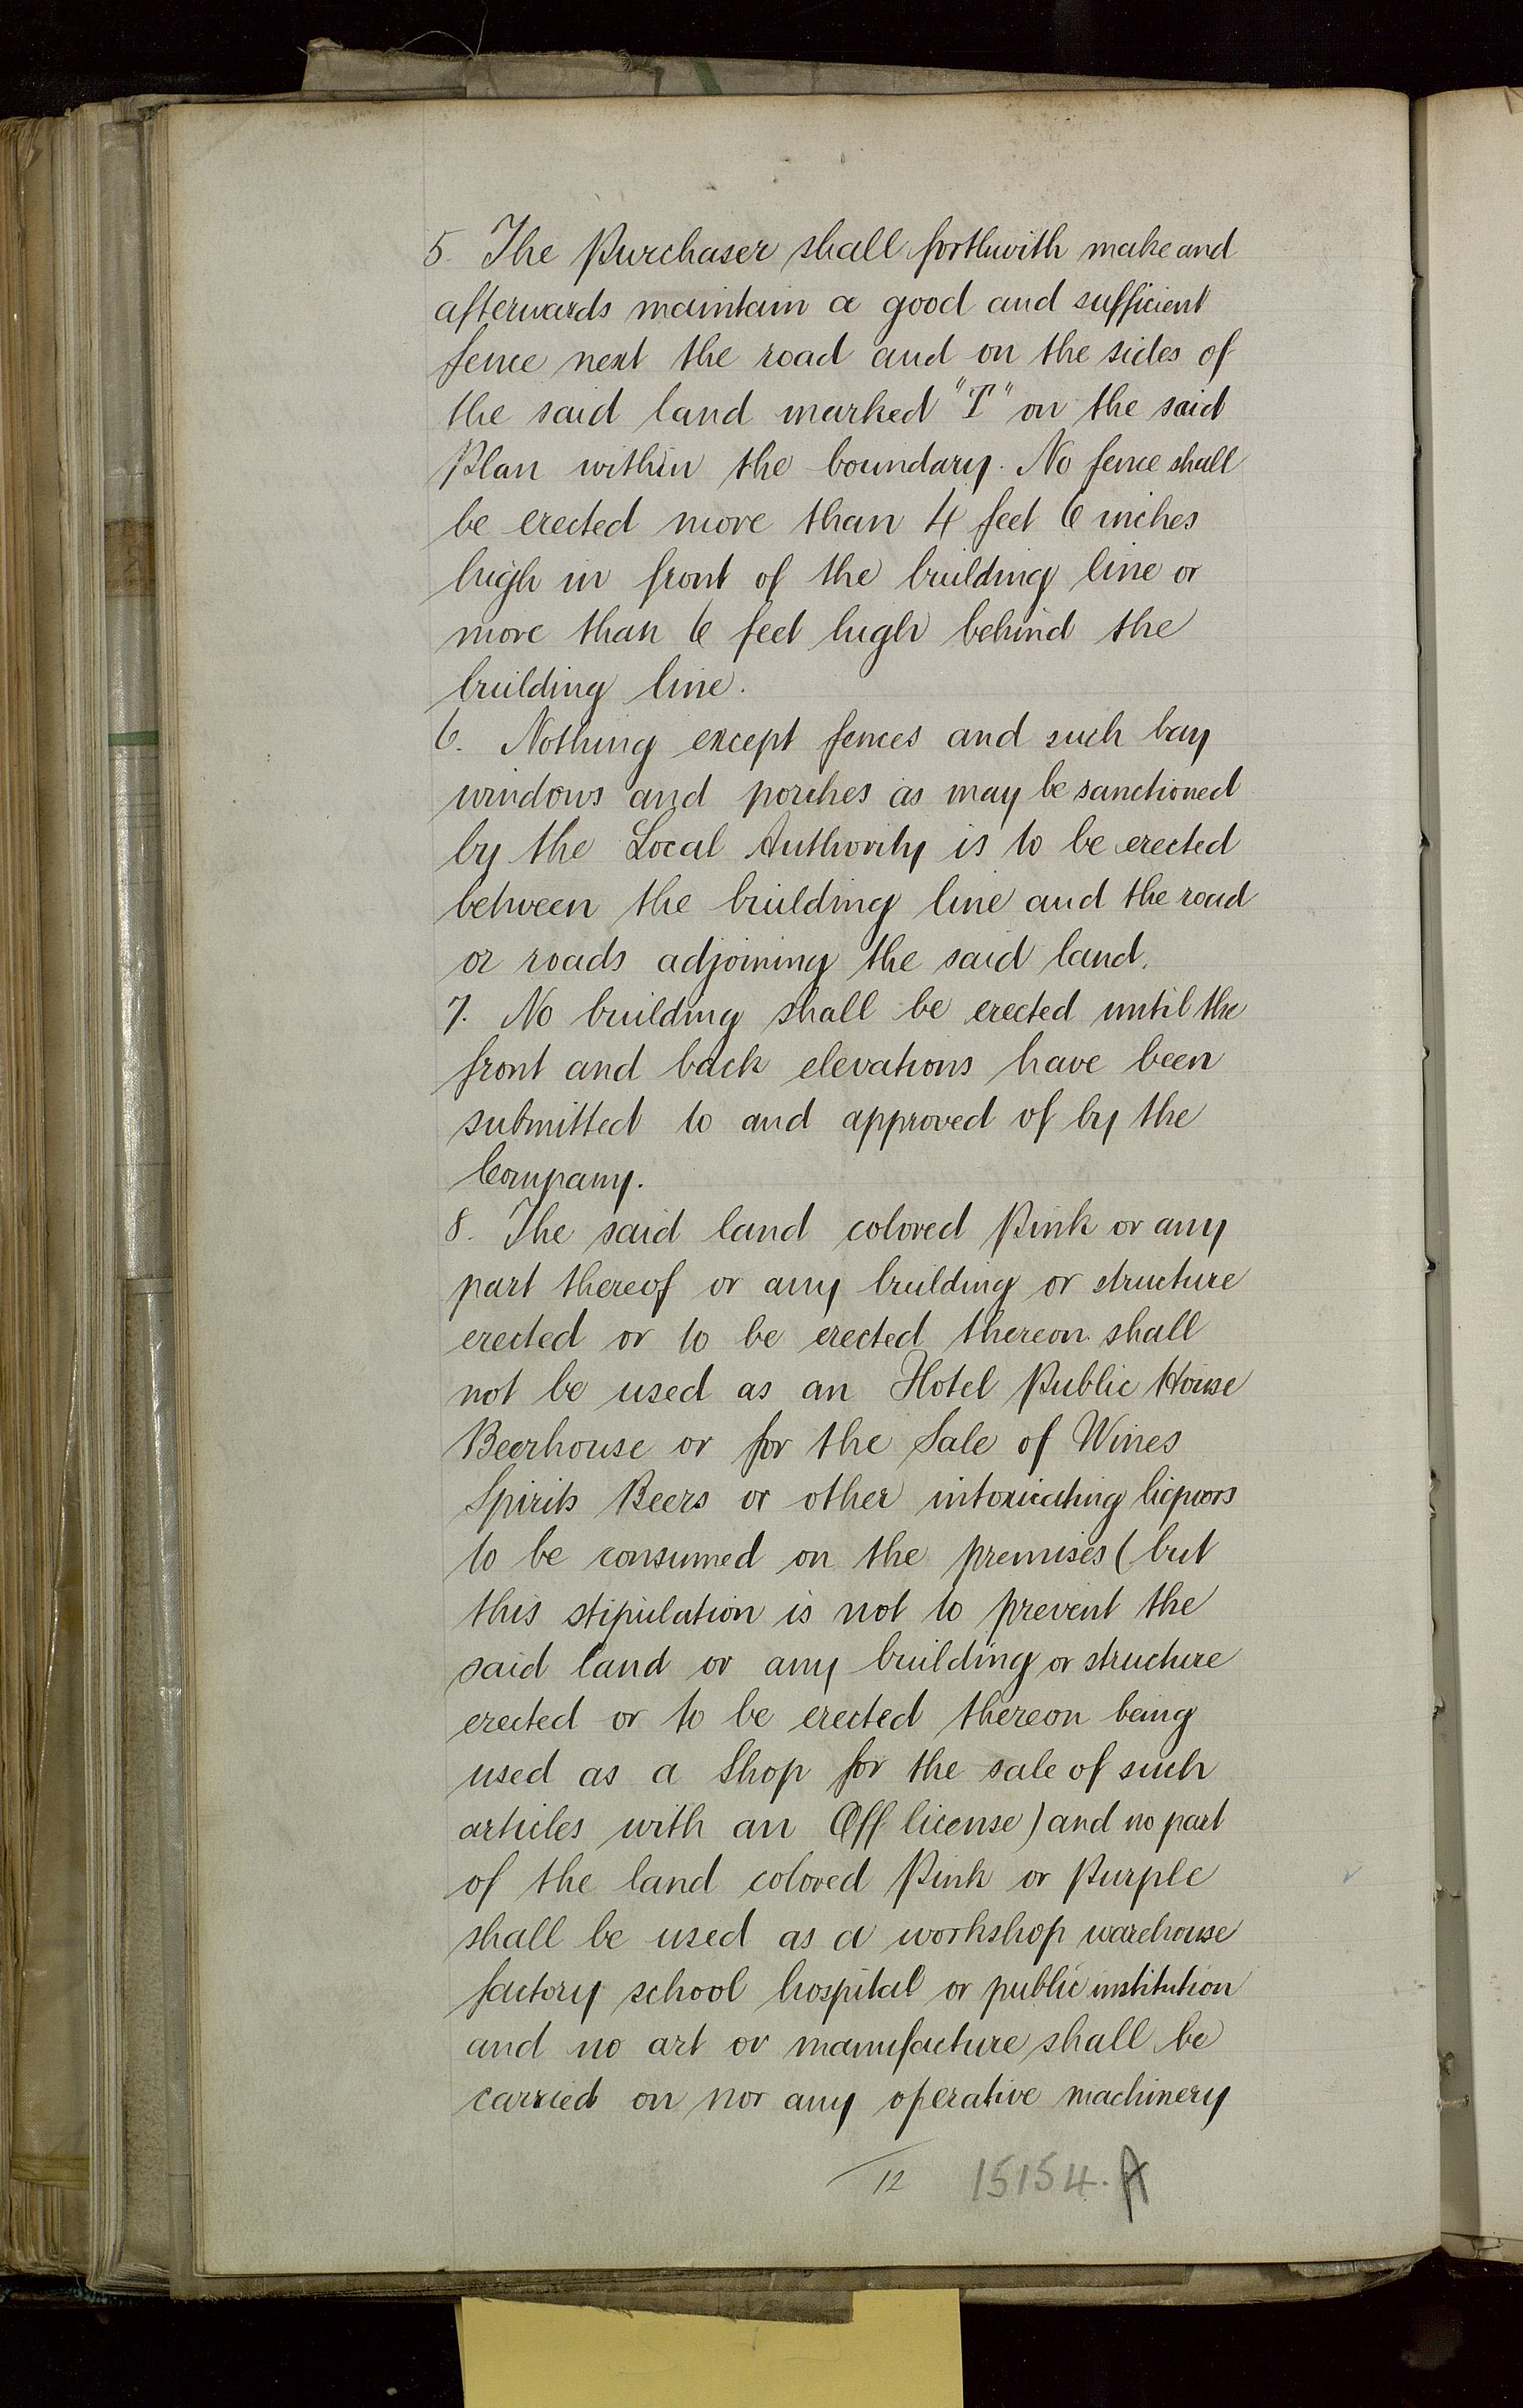 5. The Purchaser shall forthwith make and
afterwards maintain a good and sufficient
fence next the road and on the sides of
the said land marked "T" on the said
Plan within the boundary. No fence shall
be erected more than 4 feet 6 inches
high in front of the building line or
more than 6 feet high behind the
building line.
6. Nothing except fences and such bay
windows and porches as may be sanctioned
by the Local Authority is to be erected
between the building line and the road
or roads adjoining the said land.
7. No building shall be erected until the
front and back elevations have been
submitted to and approved of by the
Company.
8. The said land colored Pink or any
part thereof or any building or structure
erected or to be erected thereon shall
not be used as an Hotel Public House
Beerhouse or for the Sale of Wines
Spirits Beers or other intoxicating liquors
to be consumed on the premises (but
this stipulation is not to prevent the
said land or any building or structure
erected or to be erected thereon being
used as a Shop for the sale of such
articles with an Off license) and no part
of the land colored Pink or Purple
shall be used as a workshop warehouse
factory school hospital or public institution
and no art or manufacture shall be
carried on nor any operative machinery
12 15154.A